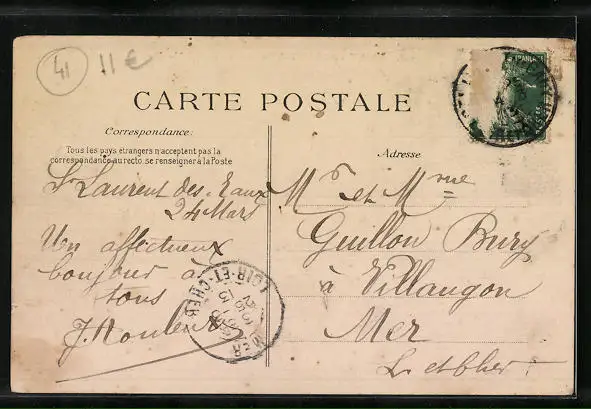 41 11 €
CARTE POSTALE
Correspondance:
Tous les pays étrangers n'acceptent pas la
correspondance au recto, se renseigner à la Poste
Adresse
St Laurent des Eaux
24 Mars
Un affectueux
bonjour à
tous
Mr et Mme
Guillon Bury
à Villaugon
Mer
L et Cher
LOIR-ET-CHER
MER